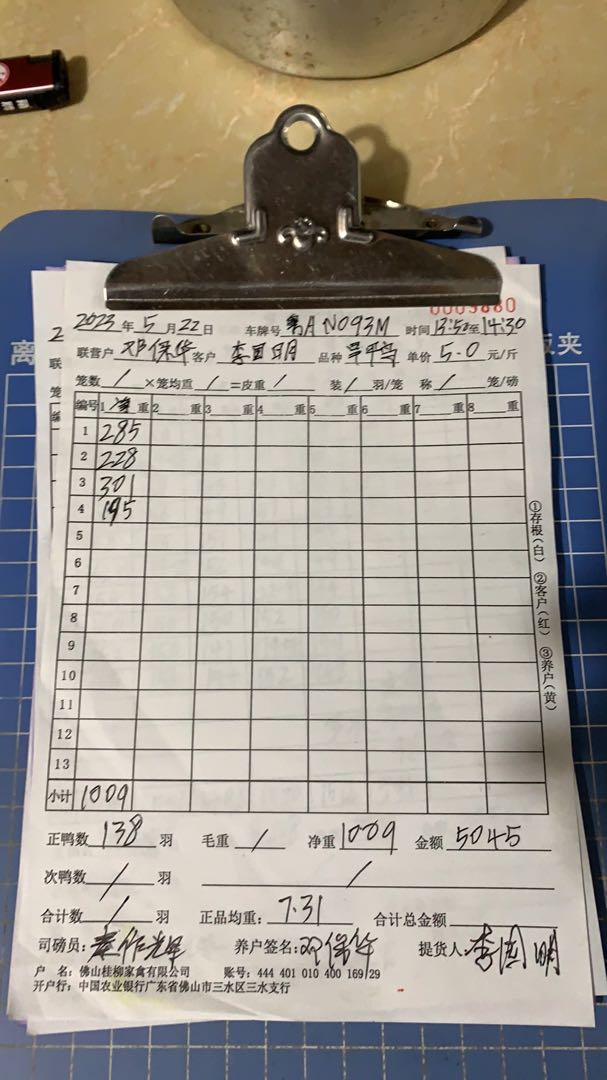 0003880
2023年5月22日 车牌号 粤A N093M 时间 13:50至14:30
联营户 邓保华 客户 李国明 品种 单价 5.0 元/斤
笼数 / ×笼均重 / =皮重 / 装 / 羽/笼 称 / 笼/磅
编号 1 净重 2 重 3 重 4 重 5 重 6 重 7 重 8 重
1 285
2 228
3 301
4 195
5
6
7
8
9
10
11
12
13
小计 1009
①存根(白) ②客户(红) ③养户(黄)
正鸭数 138 羽 毛重 / 净重 1009 金额 5045
次鸭数 / 羽 /
合计数 / 羽 正品均重: 7.31 合计总金额
司磅员: 养户签名: 邓保华 提货人: 李国明
户 名: 佛山桂柳家禽有限公司 账号: 444 401 010 400 169 29
开户行: 中国农业银行广东省佛山市三水区三水支行
板夹